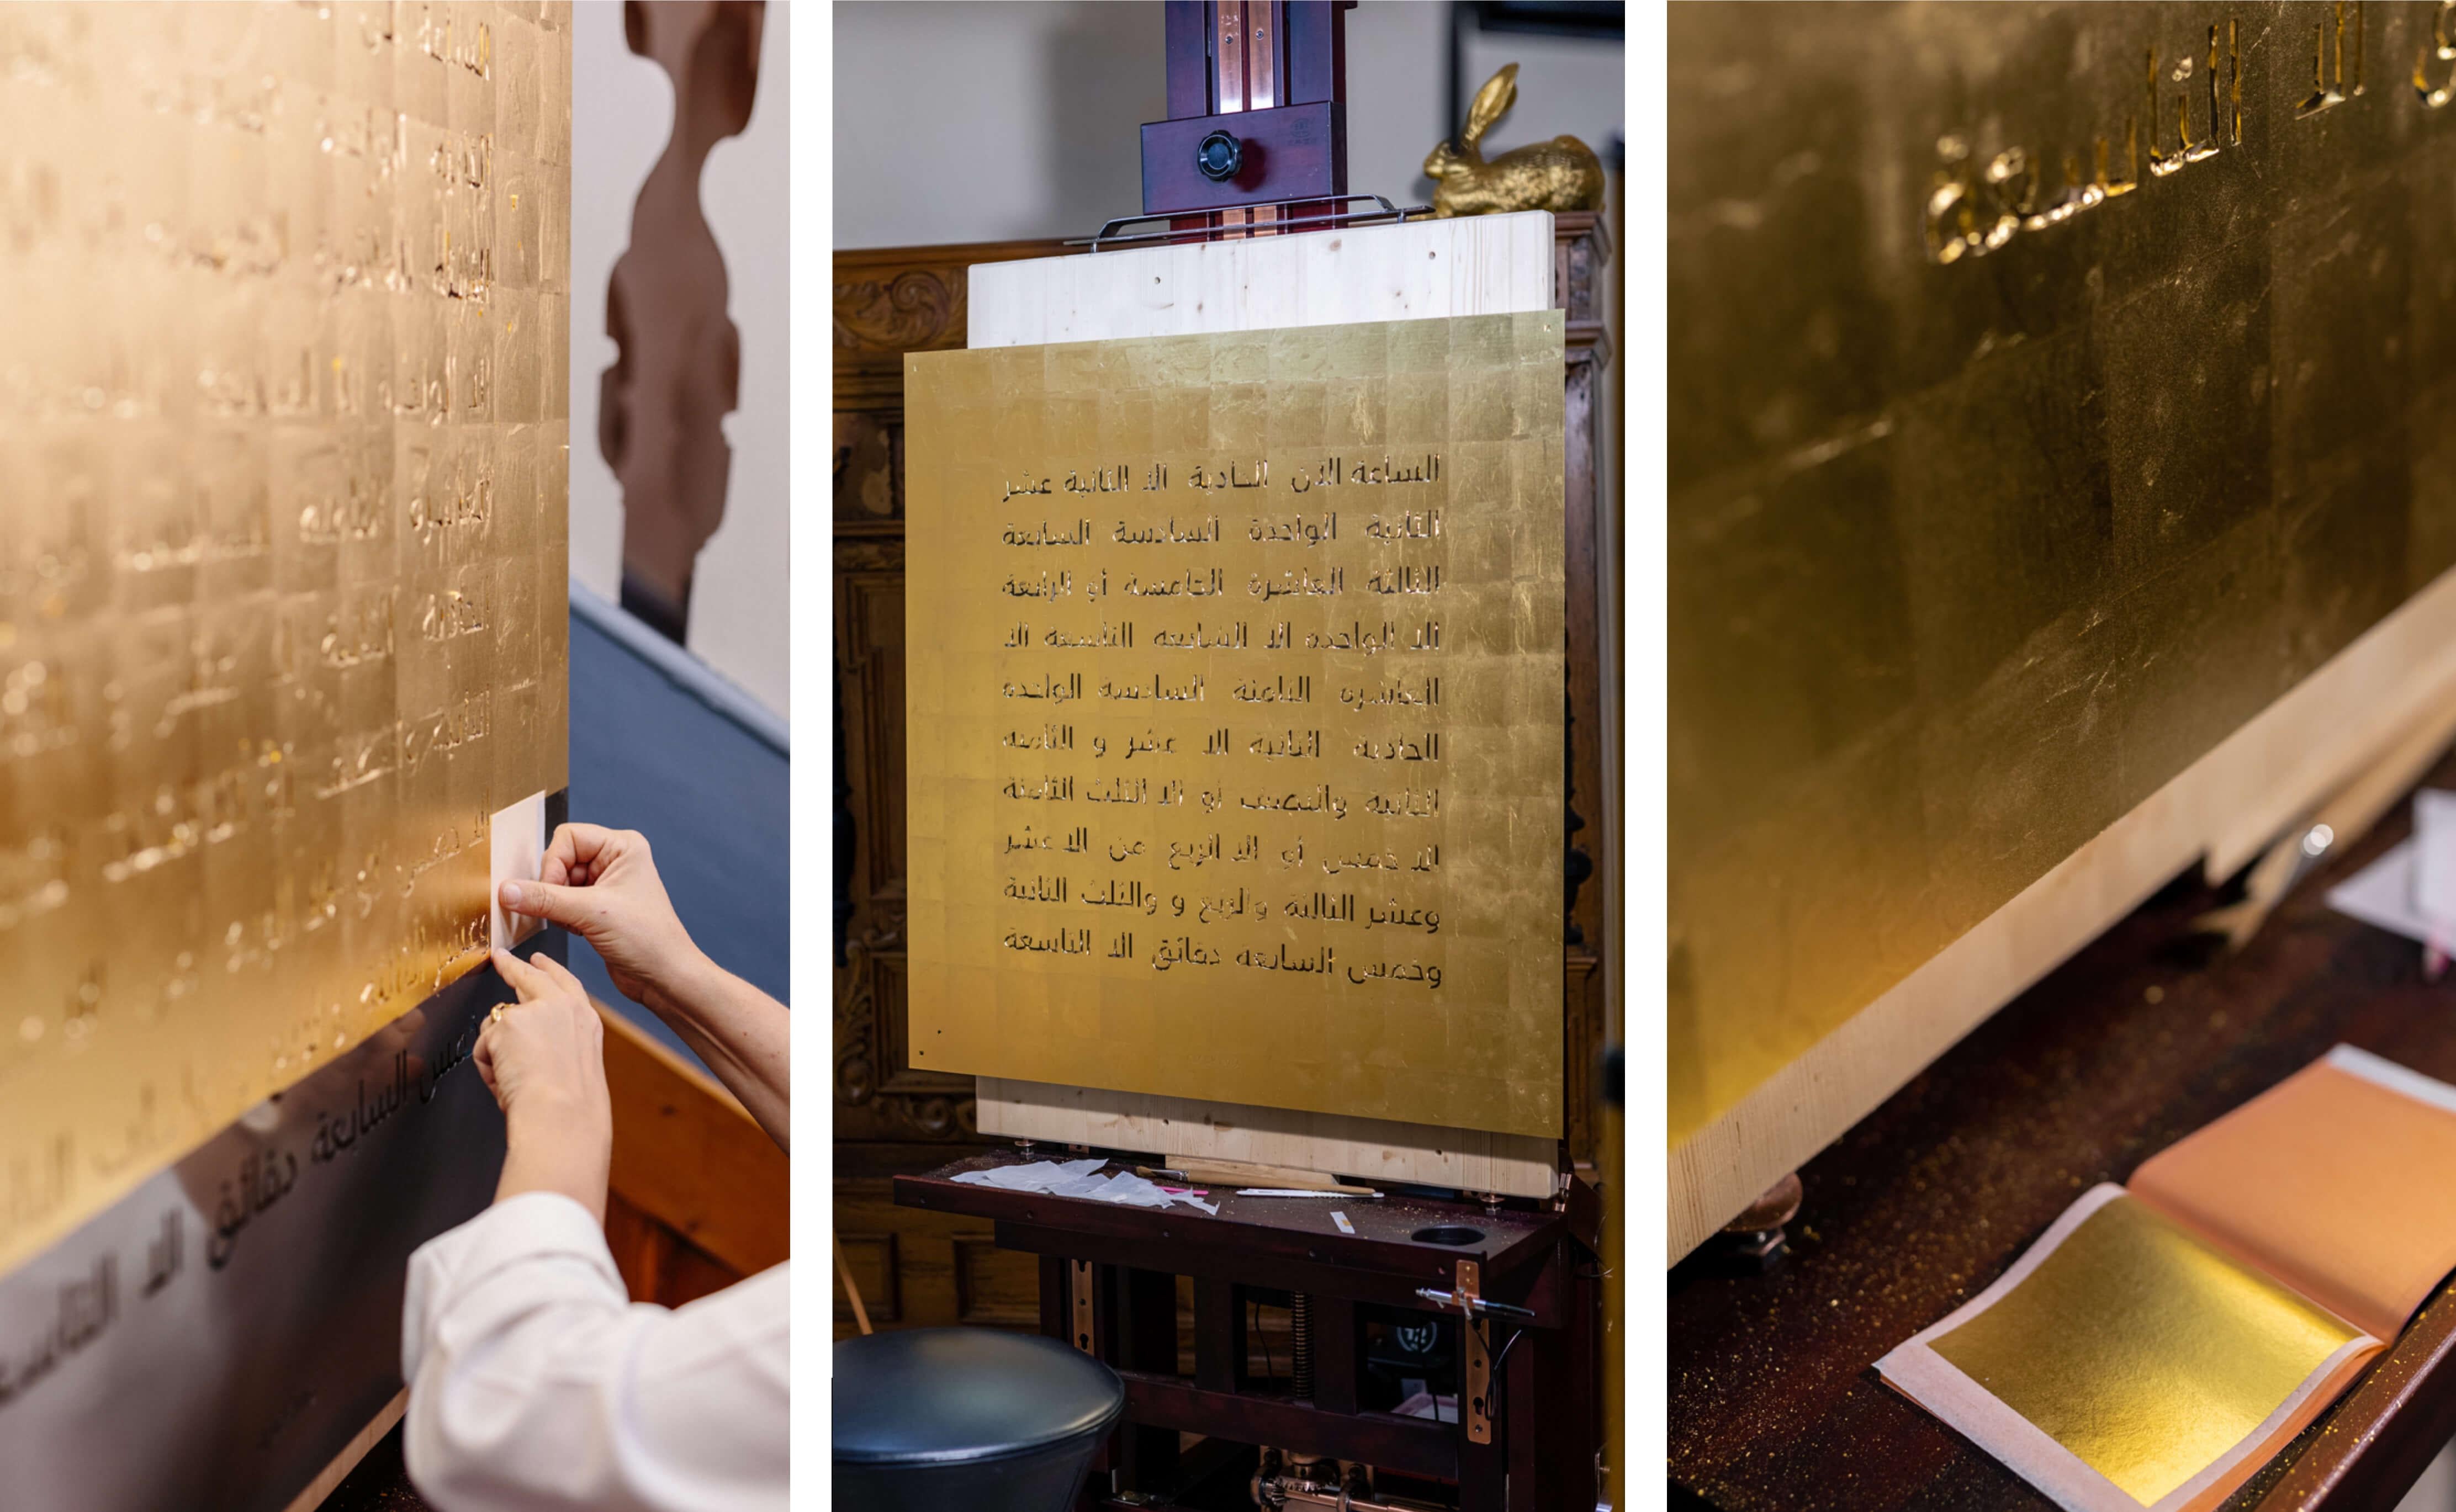 الساعة الآن الحادية الا الثانية عشر
الثانية الواحدة السادسة السابعة
الثالثة العاشرة الخامسة أو الرابعة
الا الواحدة الا السابعه التاسعة الا
العاشره الثامنة السادسة الواحده
الحادية الثانية الا عشر و الثامنه
الثانية والنصف أو الا الثلث الثامنة
الا خمس أو الا الربع من الا عشر
وعشر الثالثة والربع و والثلث الثانية
وخمس السابعه دقائق الا التاسعة